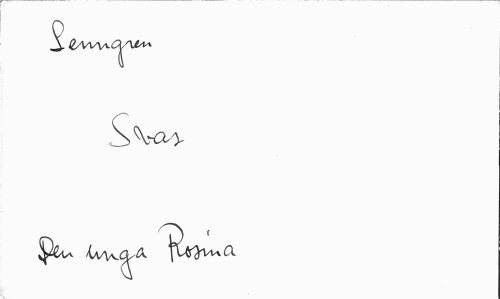 Lenngren
Svar
Den unga Rosina